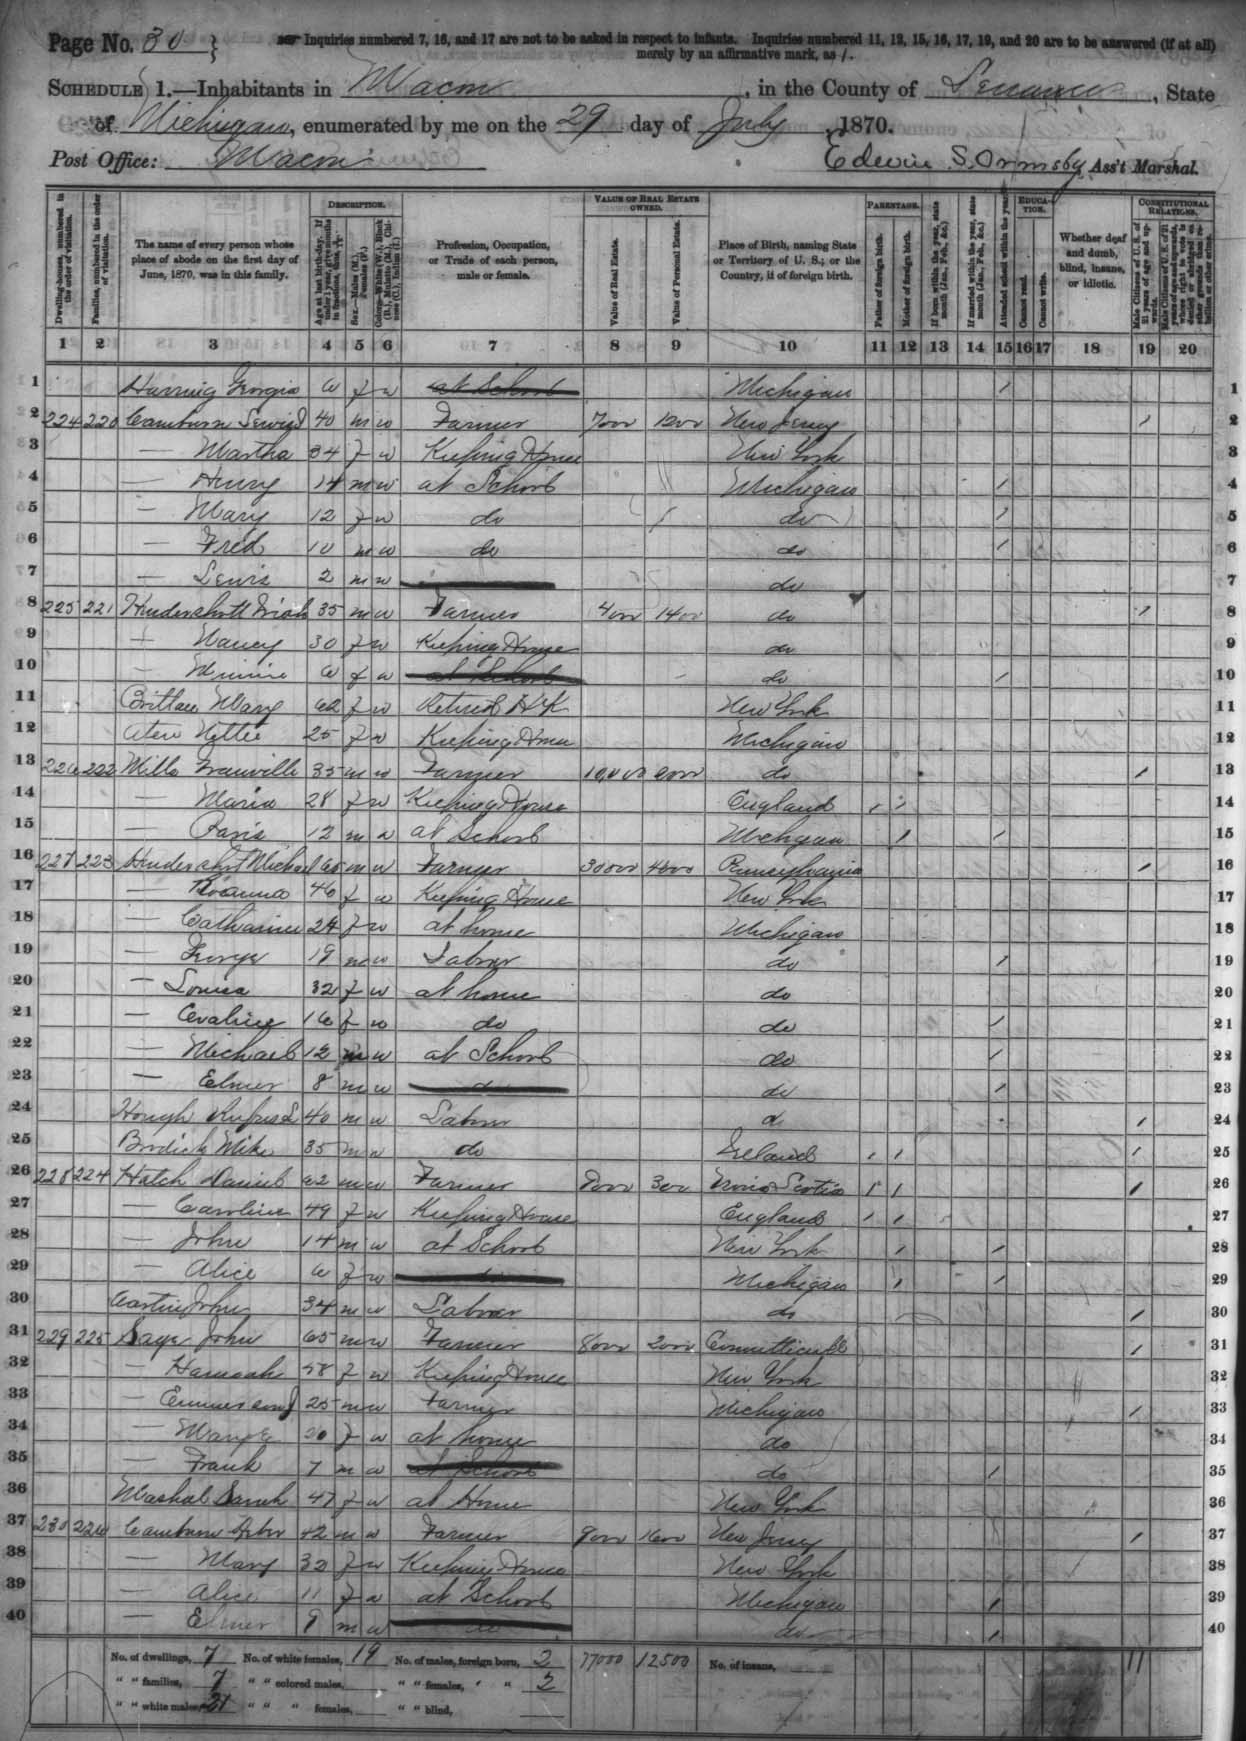 Page No. 30 } Inquiries numbered 7, 16, and 17 are not to be asked in respect to infants. Inquiries numbered 11, 12, 15, 16, 17, 19, and 20 are to be answered (if at all)
merely by an affirmative mark, as /.
SCHEDULE 1.—Inhabitants in Macon, in the County of Lenawee, State
of Michigan, enumerated by me on the 29 day of July, 1870.
Post Office: Macon Edwin S. Ormsby Ass't Marshal.
Dwelling-houses, numbered in the order of visitation.
Families, numbered in the order of visitation.
The name of every person whose place of abode on the first day of June, 1870, was in this family.
DESCRIPTION.
Age at last birth-day. If under 1 year, give months in fractions, thus,
Sex.—Males (M.), Females (F.)
Color.—White (W.), Black (B.), Mulatto (M.), Chinese (C.), Indian (I.)
Profession, Occupation, or Trade of each person, male or female.
VALUE OF REAL ESTATE OWNED.
Value of Real Estate.
Value of Personal Estate.
Place of Birth, naming State or Territory of U. S.; or the Country, if of foreign birth.
PARENTAGE.
Father of foreign birth.
Mother of foreign birth.
If born within the year, state month (Jan., Feb., &c.)
If married within the year, state month (Jan., Feb., &c.)
Attended school within the year.
EDUCATION.
Cannot read.
Cannot write.
Whether deaf and dumb, blind, insane, or idiotic.
CONSTITUTIONAL RELATIONS.
Male Citizens of U. S. of 21 years of age and upwards.
1 2 3 4 5 6 7 8 9 10 11 12 13 14 15 16 17 18 19 20
1 Georgia 6 f w at School Michigan / 1
2 224 220 Camburn Lewis 40 m w Farmer 7000 1200 New Jersey / 2
3 — Martha 34 f w Keeping House New York 3
4 — Henry 14 m w at School Michigan / 4
5 — Mary 12 f w do do / 5
6 — Fred 10 m w do do / 6
7 — Lewis 2 m w do 7
8 225 221 Hendershott 35 m w Farmer 4000 1400 do / 8
9 — Nancy 30 f w Keeping House do 9
10 — Minnie 6 f w at School do / 10
11 Mary 62 f w Retired H K New York 11
12 Aten Nettie 25 f w Keeping House Michigan 12
13 226 222 Mills Granville 35 m w Farmer 10,000 do / 13
14 — Maria 28 f w Keeping House England / / 14
15 — Paris 12 m w at School Michigan / / 15
16 227 223 Hendershot Michael 65 m w Farmer 30000 4000 Pennsylvania / 16
17 — Roanna 46 f w Keeping House New York 17
18 — Catharine 24 f w at home Michigan 18
19 — George 19 m w Labour do / 19
20 — Louisa 32 f w at home do 20
21 — Evaline 16 f w do do / 21
22 — Michael 12 m w at School do / 22
23 — Elmer 8 m w do do / 23
24 Hough Rufus L 40 m w Labour d / 24
25 Brodick Mike 35 m w do Ireland / / / 25
26 228 224 Hatch Daniel 62 m w Farmer 8000 300 Nova Scotia / / / 26
27 — Caroline 49 f w Keeping House England / / 27
28 — John 14 m w at School New York / / 28
29 — Alice 6 f w do Michigan / / 29
30 John 34 m w Labour do / 30
31 229 225 Saye John 65 m w Farmer 8000 2000 Connecticutt / 31
32 — Hannah 58 f w Keeping House New York 32
33 — Emmerson J 25 m w Farmer Michigan / 33
34 — Mary E 20 f w at home do 34
35 — Frank 7 m w at School do / 35
36 Mashal Sarah 47 f w at Home New York 36
37 230 226 Camburn 42 m w Farmer 9000 1600 New Jersey / 37
38 — Mary 32 f w Keeping House New York 38
39 — Alice 11 f w at School Michigan / 39
40 — Elmer 8 m w do do / 40
No. of dwellings, 7 No. of white females, 19 No. of males, foreign born, 2 77000 12500 No. of insane, 11
" " families, 7 " " colored males, " " females, " " 2
" " white males, 21 " " " females, " " blind,